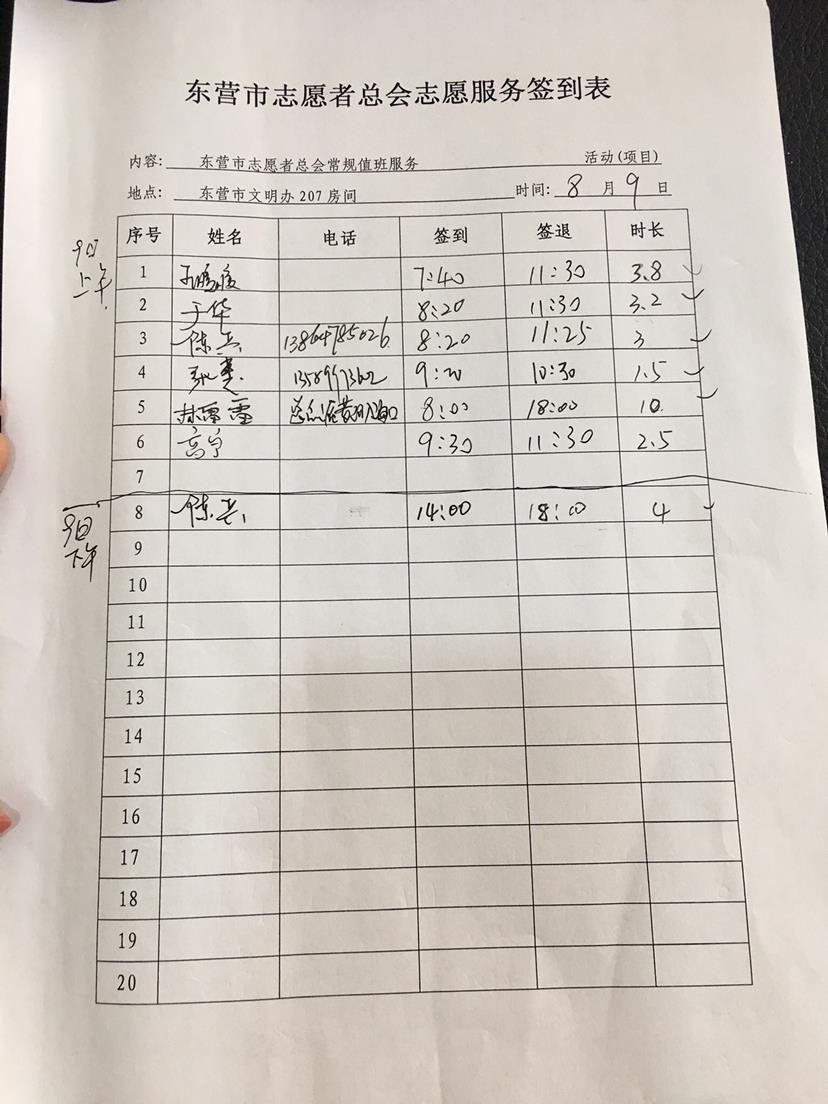 东营市志愿者总会志愿服务签到表
内容: 东营市志愿者总会常规值班服务 活动(项目)
地点: 东营市文明办 207 房间 时间: 8 月 9 日
序号 姓名 电话 签到 签退 时长
9日上午
1 7:40 11:30 3.8
2 于华 8:20 11:30 3.2
3 陈兵 13864785026 8:20 11:25 3
4 9:20 10:30 1.5
5 林雷雷 8:00 18:00 10
6 高宁 9:30 11:30 2.5
7
9日下午
8 陈兵 14:00 18:00 4
9
10
11
12
13
14
15
16
17
18
19
20